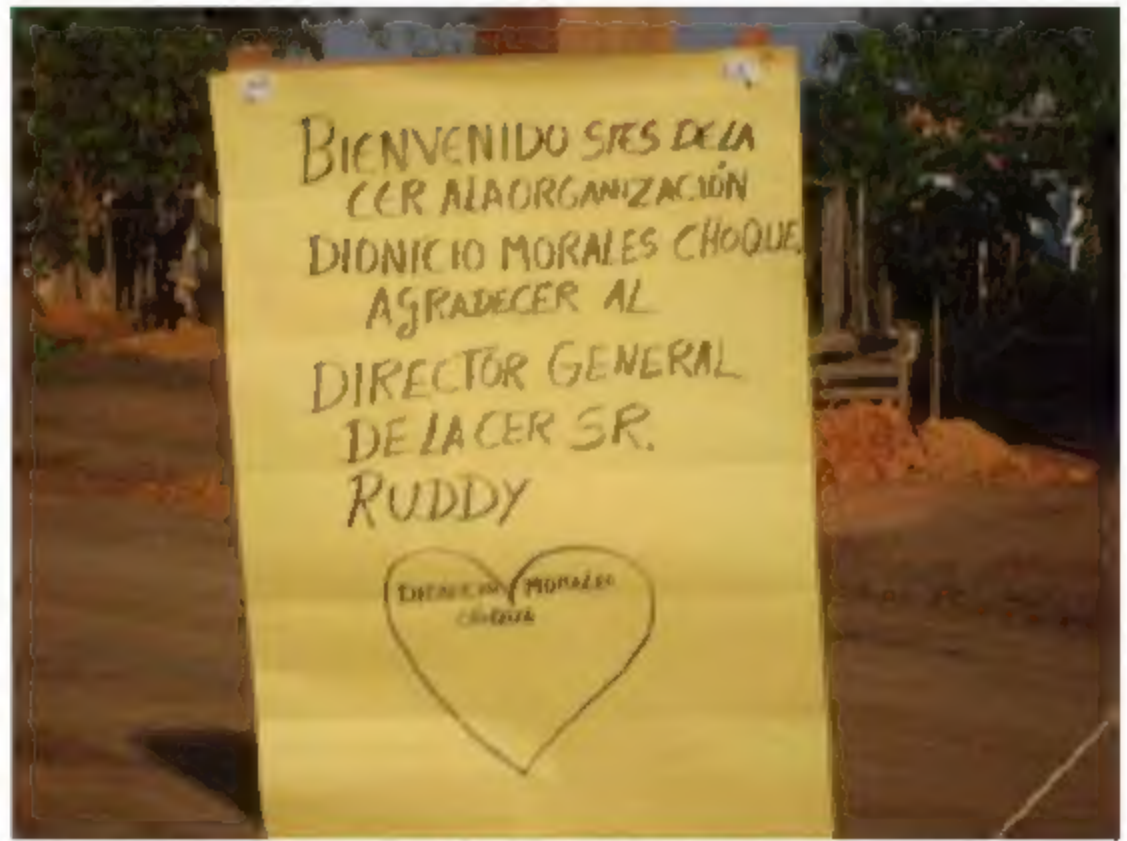 BIENVENIDO SRES DE LA
CER A LA ORGANIZACIÓN
DIONICIO MORALES CHOQUE
AGRADECER AL
DIRECTOR GENERAL
DE LA CER SR.
RUDDY
DIONICIO MORALES
CHOQUE